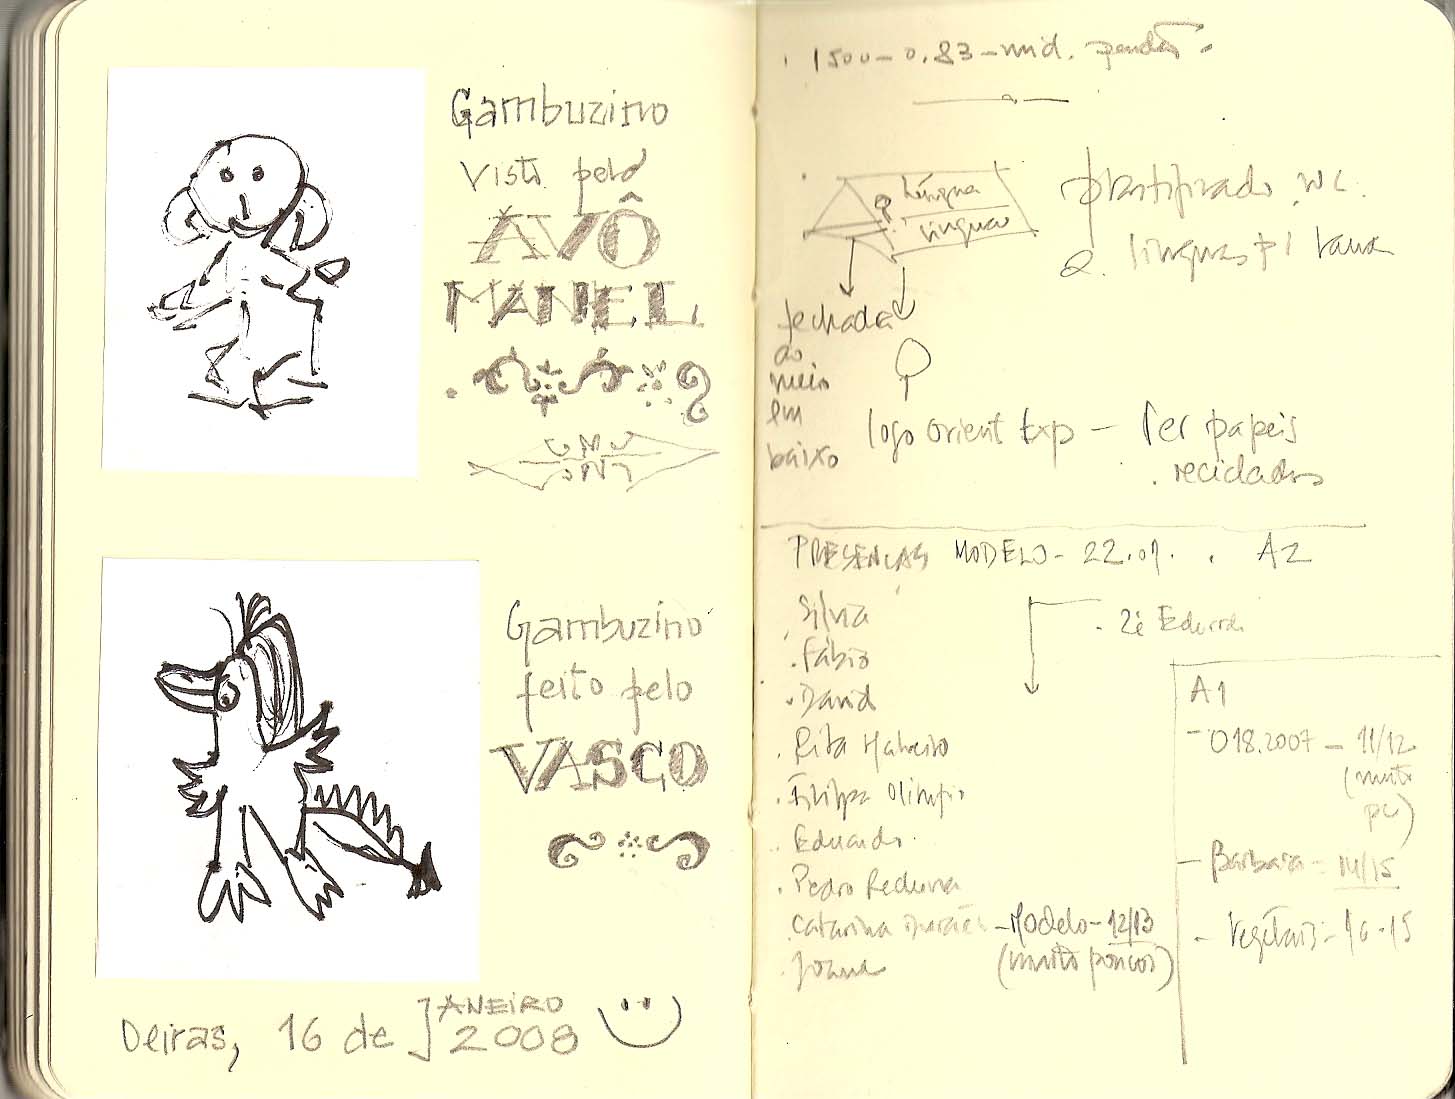 Gambuzino
visto pelo
AVÔ
MANEL
Gambuzino
feito pelo
VASCO
Oeiras, 16 de JANEIRO
2008
1500 - 0.83 - mid.
Língua
Línguas
plastificado, WC.
2. línguas
fechada
ao
meio
em
baixo
logo orient Exp - Ver papeis
. reciclados
PRESENÇAS MODELO - 22.01. . A2
Sílvia
. Fábio
. David
. Rita
. Filipa Olimpio
. Eduardo.
. Pedro
Catarina - Modelo - 12/13
Joana (muito poucos)
. Zé
A1
- 018.2007 - 11/12
(muito
pc)
- Bárbara - 14/15
- Vegetais - 16-15